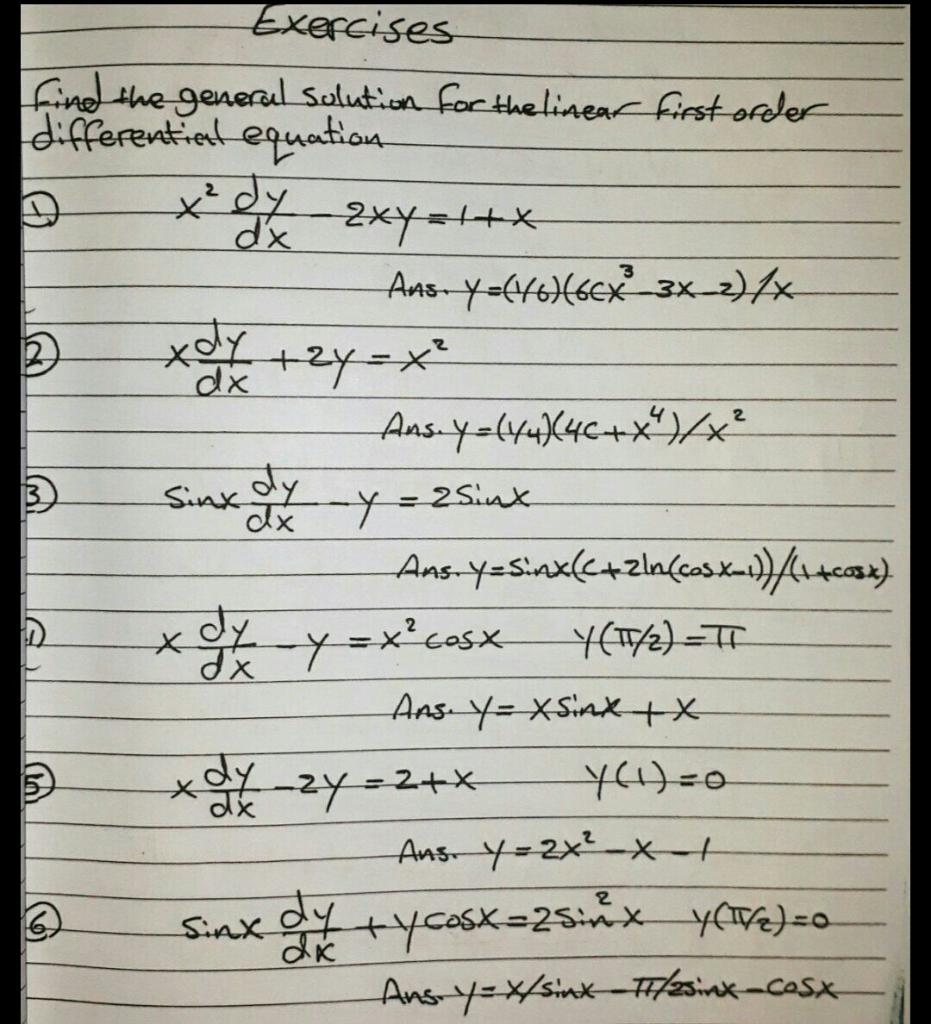 Exercises
Find the general solution for the linear first order
differential equation
① x² dy/dx - 2xy = 1 + x
Ans. y = (1/6)(6cx³ - 3x - 2)/x
② x dy/dx + 2y = x²
Ans. y = (1/4)(4c + x⁴)/x²
③ Sinx dy/dx - y = 2 Sinx
Ans. y = Sinx(c + 2ln(cosx-1))/(1+cosx)
x dy/dx - y = x² cosx y(π/2) = π
Ans. y = x Sinx + x
⑤ x dy/dx - 2y = 2 + x y(1) = 0
Ans. y = 2x² - x - 1
⑥ Sinx dy/dx + y cosx = 2 Sin²x y(π/2) = 0
Ans. y = x/sinx - π/2sinx - cosx